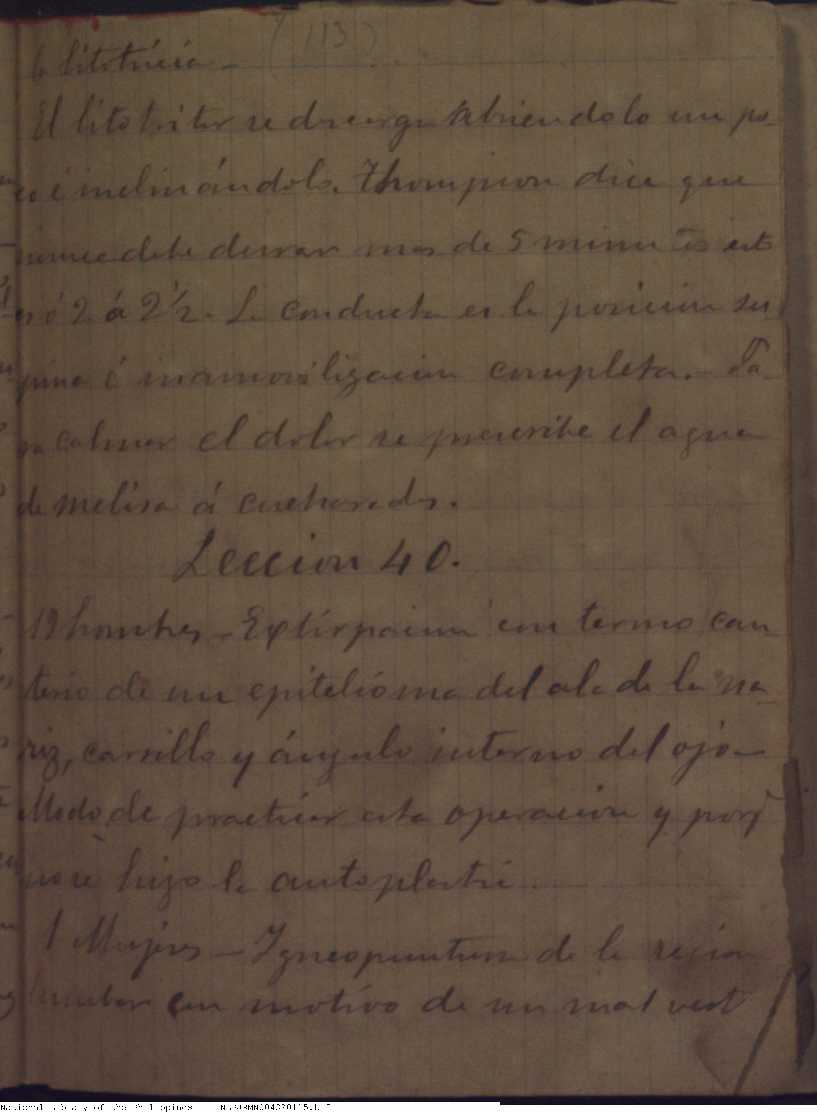 (113)
la litotricia. -
El litotritor se descarga abriendolo un po-
co é inclinándolo. Thompson dice que
nunca debe durar mas de 5 minutos esto
es ó 2 á 2 1/2. La conducta es la posicion su
pina é inamovilizacion completa. - Pa-
ra calmar el dolor se prescribe el agua
de melisa á cucharadas.
Leccion 40.
12 hombres - Extirpacion con termo cau
terio de un epitelioma del ala de la na-
riz, carrillo y ángulo interno del ojo -
Modo de practicar esta operacion y porq
no se hizo la autoplastia
1 Mujeres - Igneopuntura de la region
lumbar con motivo de un mal vert
National Library of the Philippines